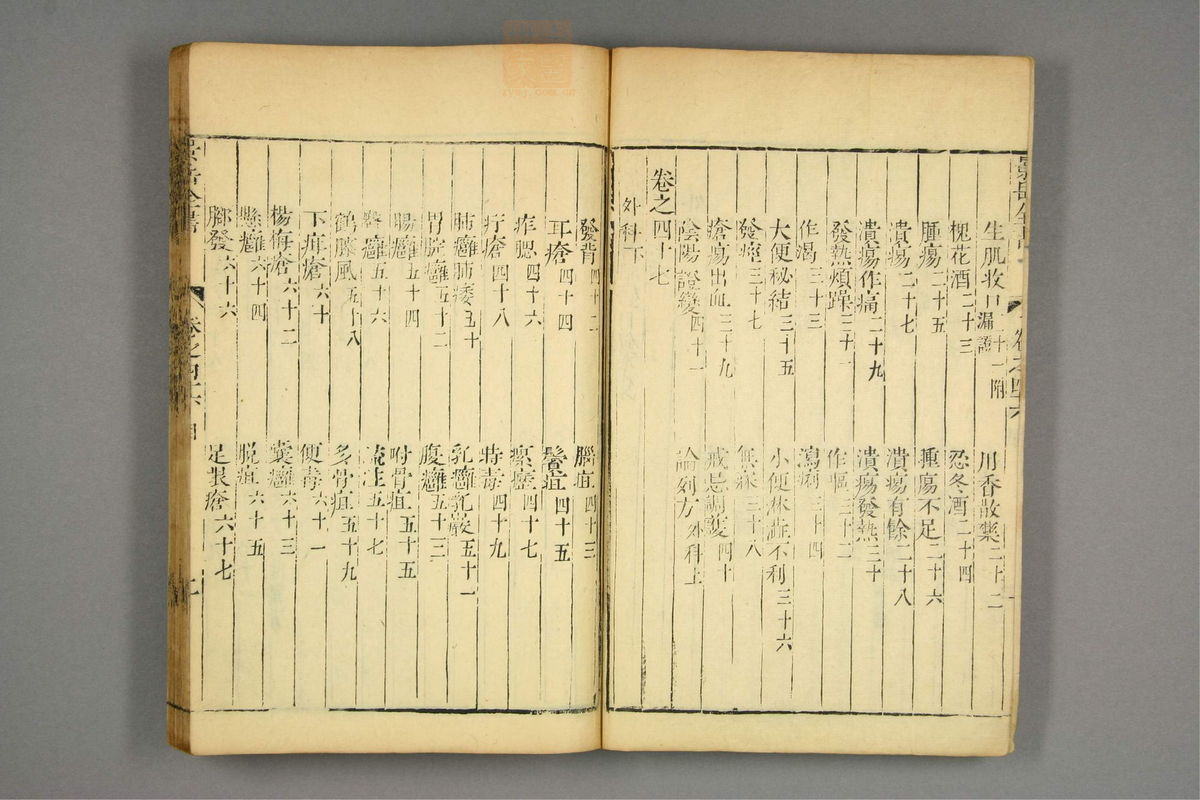 生肌收口二十一附漏證
川香散藥二十二
槐花酒二十三
忍冬酒二十四
腫瘍二十五
腫瘍不足二十六
潰瘍二十七
潰瘍有餘二十八
潰瘍作痛二十九
潰瘍發熱三十
發熱煩躁三十一
作嘔三十二
作渴三十三
瀉痢三十四
大便秘結三十五
小便淋澁不利三十六
發痙三十七
無寐三十八
瘡瘍出血三十九
戒忌調護四十
陰陽證變四十一
論列方外科上
卷之四十七
外科下
發背四十二
腦疽四十三
耳瘡四十四
鬢疽四十五
痄腮四十六
瘰癧四十七
疔瘡四十八
時毒四十九
肺癰肺痿五十
乳癰乳巖五十一
胃脘癰五十二
腹癰五十三
腸癰五十四
附骨疽五十五
臀癰五十六
流注五十七
鶴膝風五十八
多骨疽五十九
下疳瘡六十
便毒六十一
楊梅瘡六十二
囊癰六十三
懸癰六十四
脫疽六十五
腳發六十六
足跟瘡六十七
景岳全書
卷之四十六 目